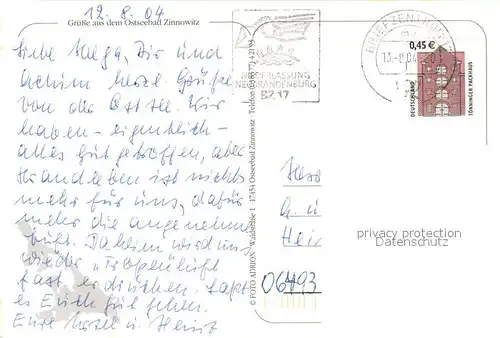 12.8.04
Grüße aus dem Ostseebad Zinnowitz
Liebe Helga, Dir und
Achim herzl. Grüße
von der Ostsee. Wir
haben - eigentlich -
alles gut getroffen, aber
Strandleben ist nichts
mehr für uns, dafür
mehr die angenehme
Luft. Daheim wird uns
wieder "Tropenluft
fast erdrücken. Laßt
es Euch gut gehen.
Eure und Heinz
© FOTO AHRION Waldstraße 1 · 17454 Ostseebad Zinnowitz · Telefon
NIEDERLASSUNG
NEUBRANDENBURG
BZ 17
BRIEFZENTRUM
13.-8.04
0,45 €
DEUTSCHLAND
TÖNNINGER PACKHAUS
G. u
Hei
06493
privacy protection
Datenschutz